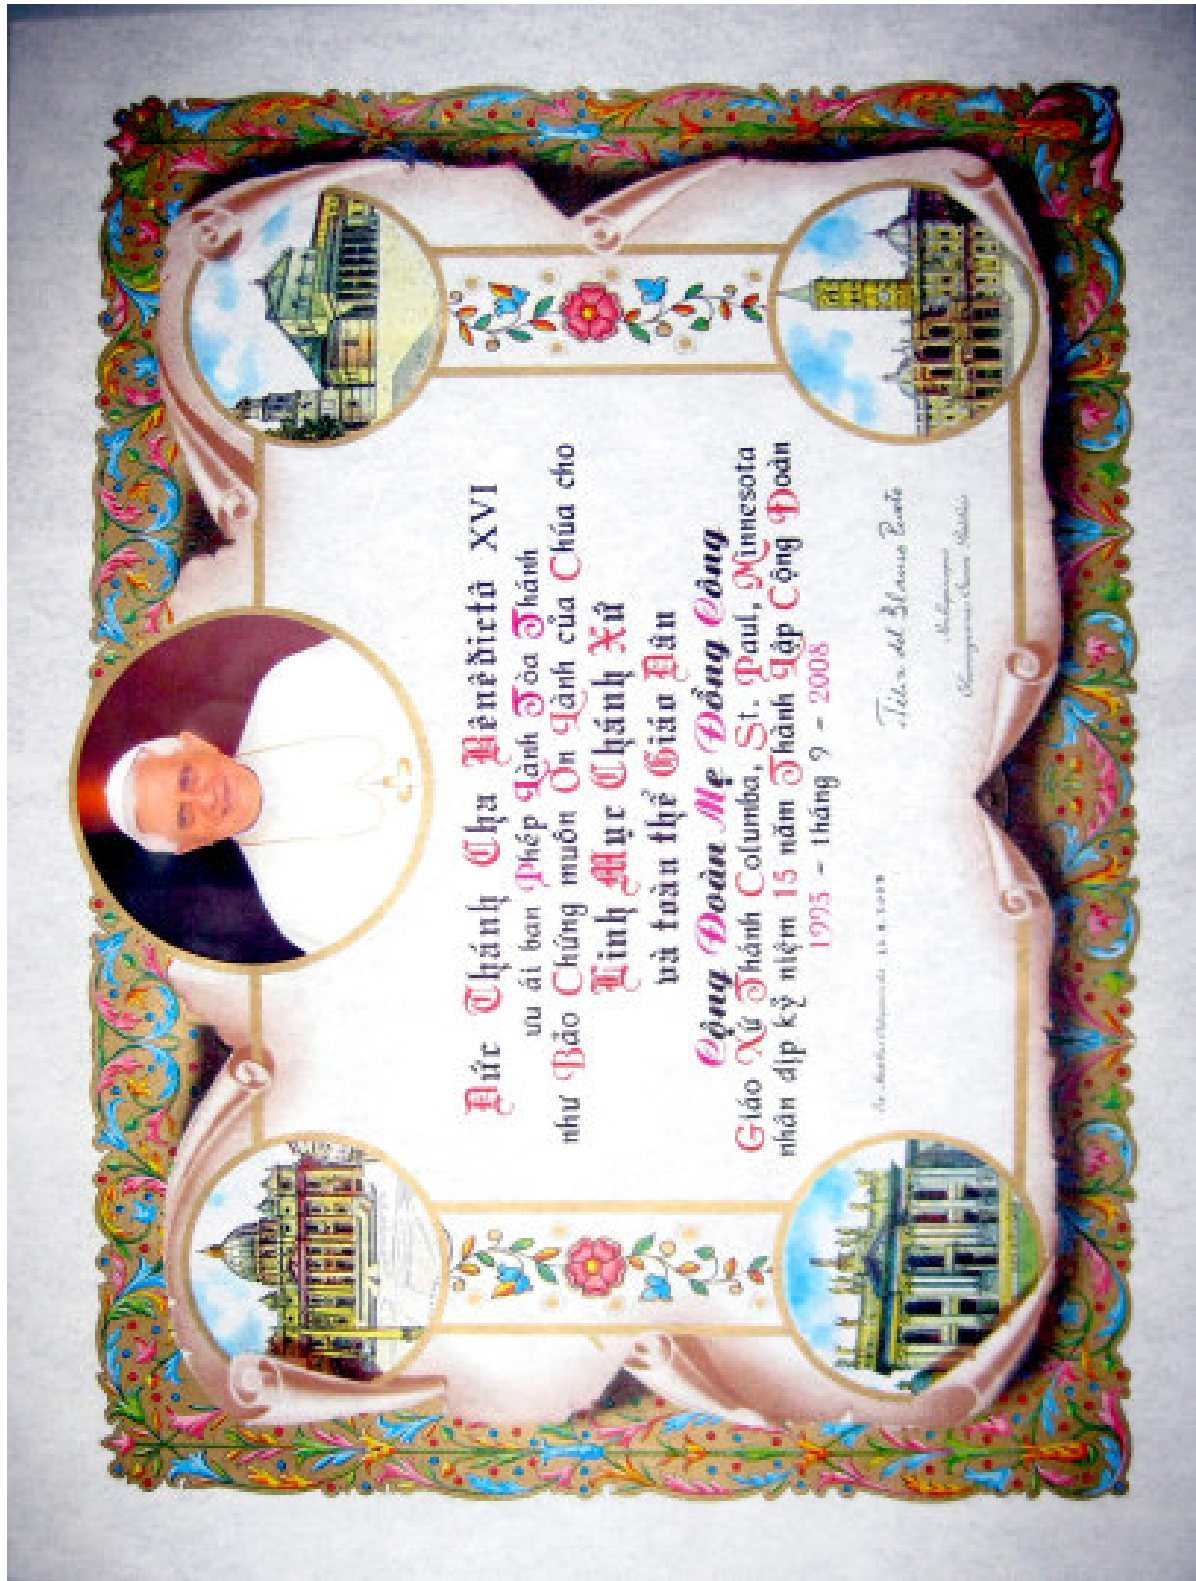 Đức Thánh Cha Bênêđictô XVI
ưu ái ban Phép Lành Tòa Thánh
như Bảo Chứng muôn Ơn Lành của Chúa cho
Linh Mục Chánh Xứ
và toàn thể Giáo Dân
Cộng Đoàn Mẹ Đồng Công
Giáo Xứ Thánh Columba, St. Paul, Minnesota
nhân dịp kỷ niệm 15 năm Thành Lập Cộng Đoàn
1993 - tháng 9 - 2008